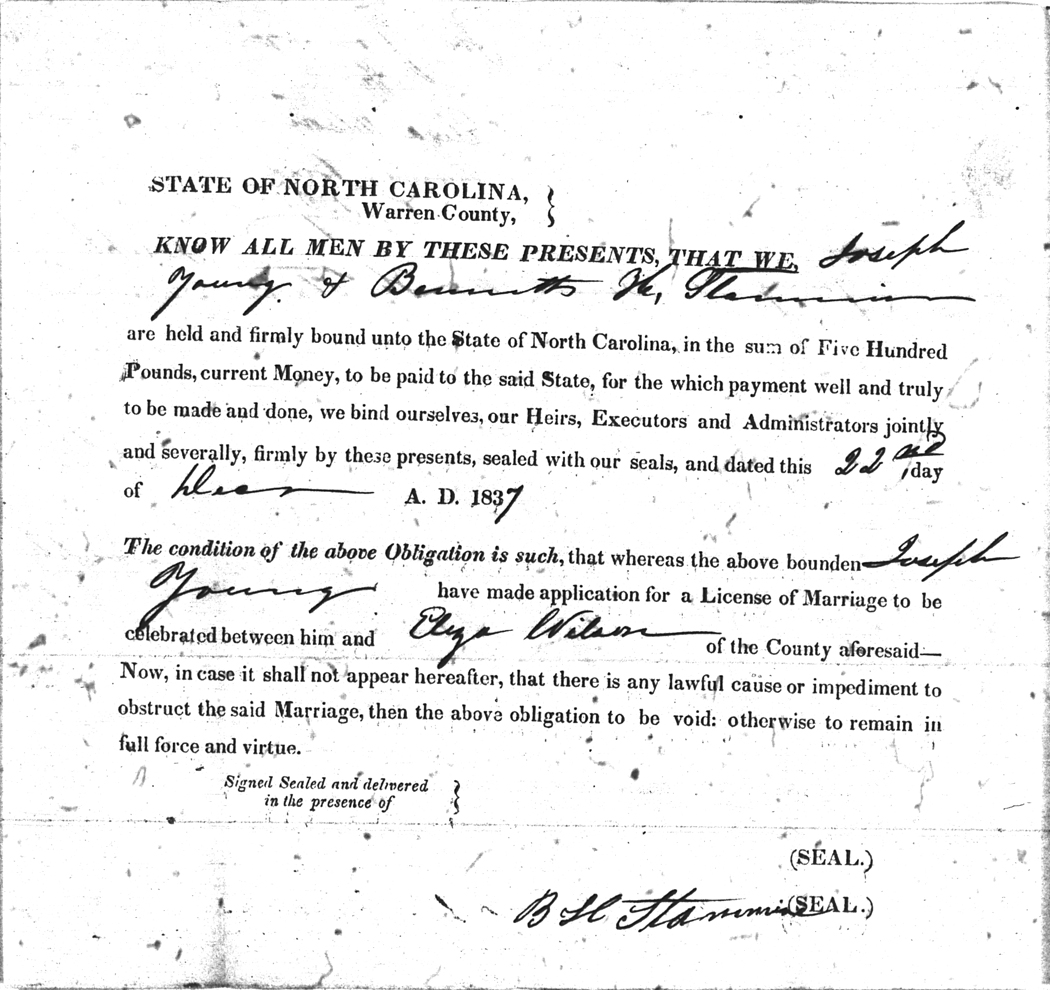 STATE OF NORTH CAROLINA,
Warren County,
KNOW ALL MEN BY THESE PRESENTS, THAT WE, Joseph
Young & Bennett H,
are held and firmly bound unto the State of North Carolina, in the sum of Five Hundred
Pounds, current Money, to be paid to the said State, for the which payment well and truly
to be made and done, we bind ourselves, our Heirs, Executors and Administrators jointly
and severally, firmly by these presents, sealed with our seals, and dated this 22nd day
of Decr A. D. 1837
The condition of the above Obligation is such, that whereas the above bounden Joseph
Young have made application for a License of Marriage to be
celebrated between him and Eliza Wilson of the County aforesaid—
Now, in case it shall not appear hereafter, that there is any lawful cause or impediment to
obstruct the said Marriage, then the above obligation to be void: otherwise to remain in
full force and virtue.
Signed Sealed and delivered
in the presence of
(SEAL.)
B H (SEAL.)